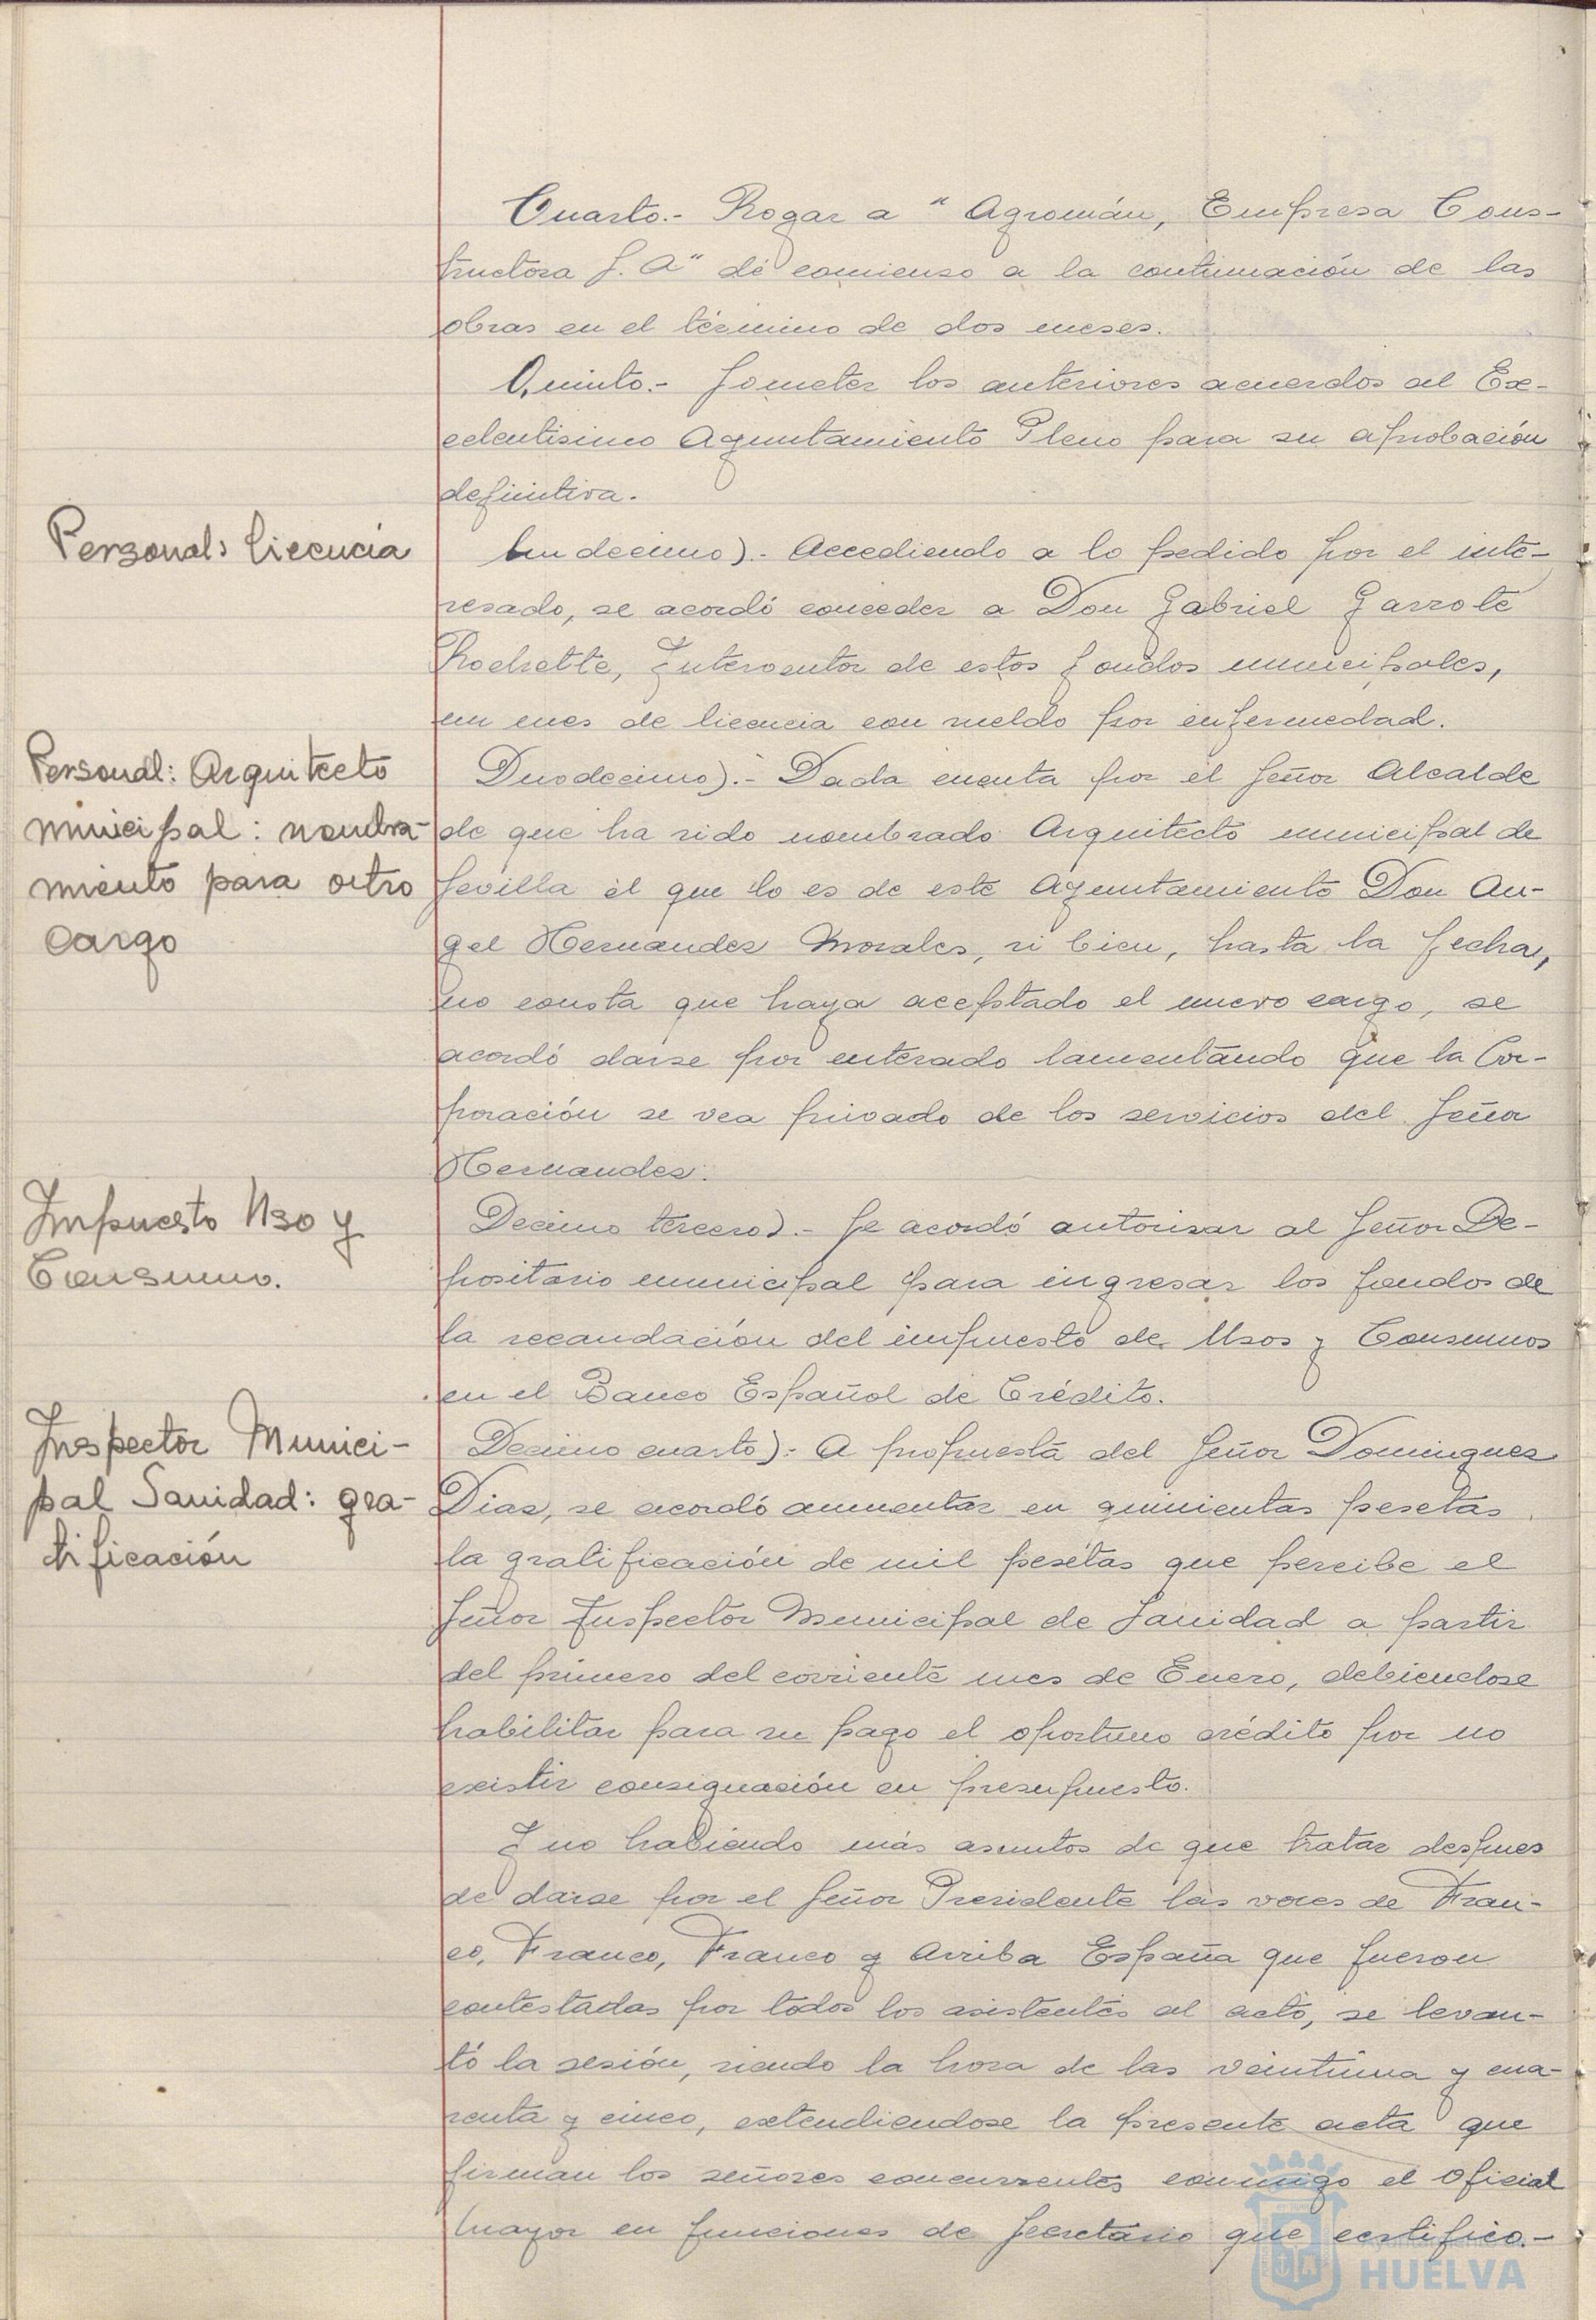 Cuarto.- Rogar a "Agromán, Empresa Cons-
tructora S. A" dé comienzo a la continuación de las
obras en el término de dos meses.
Quinto.- Someter los anteriores acuerdos al Ex-
celentisimo Ayuntamiento Pleno para su aprobación
definitiva.
Personal: licencia
Undecimo).- Accediendo a lo pedido por el inte-
resado, se acordó conceder a Don Gabriel Garrote
Rochette, Interventor de estos fondos municipales,
un mes de licencia con sueldo por enfermedad.
Personal: Arquitecto
municipal: nombra-
miento para otro
cargo
Duodecimo).- Dada cuenta por el Señor Alcalde
de que ha sido nombrado Arquitecto municipal de
Sevilla el que lo es de este Ayuntamiento Don An-
gel Hernandez Morales, si bien, hasta la fecha,
no consta que haya aceptado el nuevo cargo, se
acordó darse por enterado lamentando que la Cor-
poración se vea privado de los servicios del Señor
Hernandez.
Impuesto Uso y
Consumo.
Decimo tercero).- Se acordó autorizar al Señor De-
positario municipal para ingresar los fondos de
la recaudación del impuesto de Usos y Consumos
en el Banco Español de Crédito.
Inspector Munici-
pal Sanidad: gra-
tificación
Decimo cuarto).- A propuesta del Señor Dominguez
Diaz, se acordó aumentar en quinientas pesetas
la gratificación de mil pesetas que percibe el
Señor Inspector Municipal de Sanidad a partir
del primero del corriente mes de Enero, debiendose
habilitar para su pago el oportuno crédito por no
existir consignación en presupuesto.
Y no habiendo más asuntos de que tratar despues
de darse por el Señor Presidente las voces de Fran-
co, Franco, Franco y Arriba España que fueron
contestadas por todos los asistentes al acto, se levan-
tó la sesión, siendo la hora de las veintiuna y cua-
renta y cinco, extendiendose la presente acta que
firman los señores concurrentes conmigo el Oficial
Mayor en funciones de Secretario que certifico.-
HUELVA